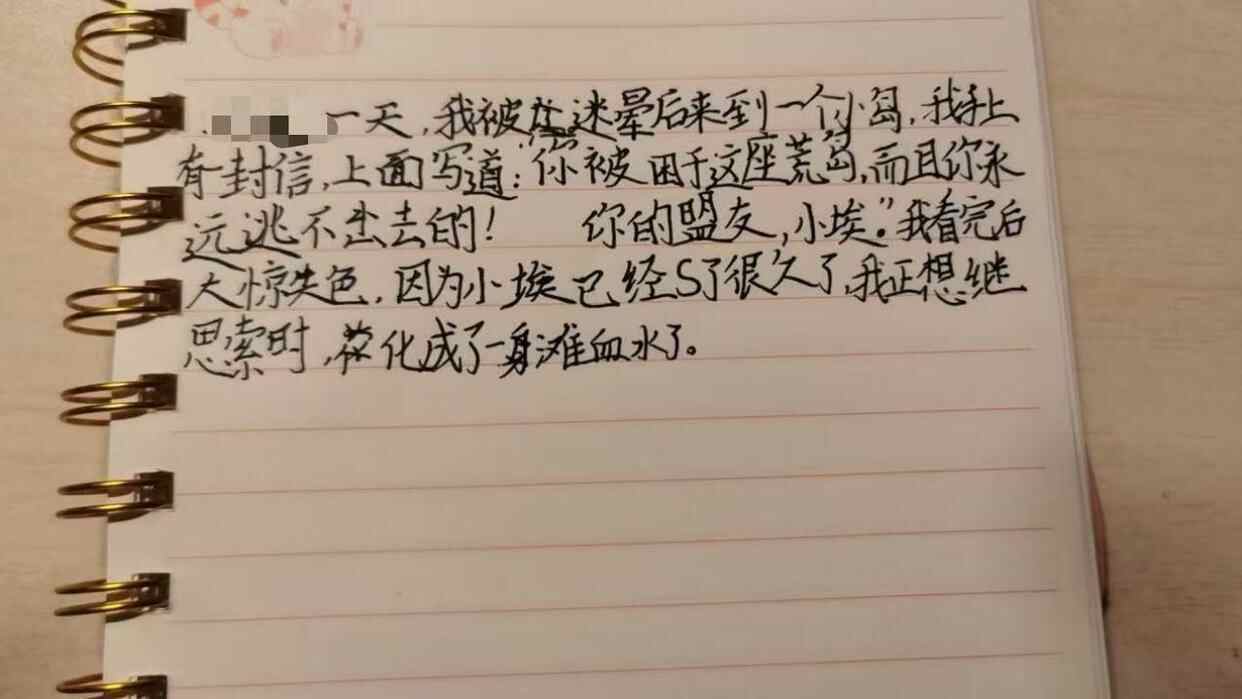 一天,我被迷晕后来到一个小岛,我手上
有封信,上面写道:“你被困于这座荒岛,而且你永
远逃不出去的! 你的盟友,小埃。”我看完后
大惊失色,因为小埃已经S了很久了,我正想继
思索时,化成了一滩血水了。